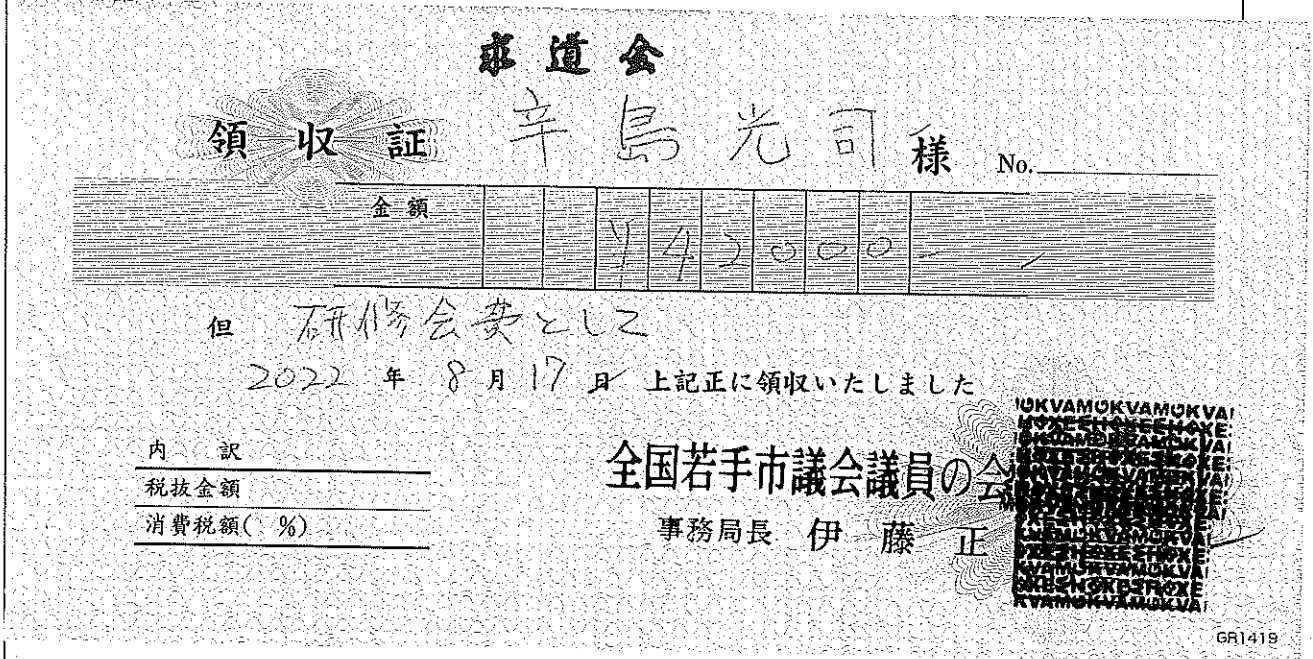 求道会
領収証 辛島光司 様 No.
金額 ¥42000-
但 研修会費として
2022 年 8 月 17 日 上記正に領収いたしました
内 訳
税抜金額
消費税額( %)
全国若手市議会議員の会
事務局長 伊藤正
GR1419